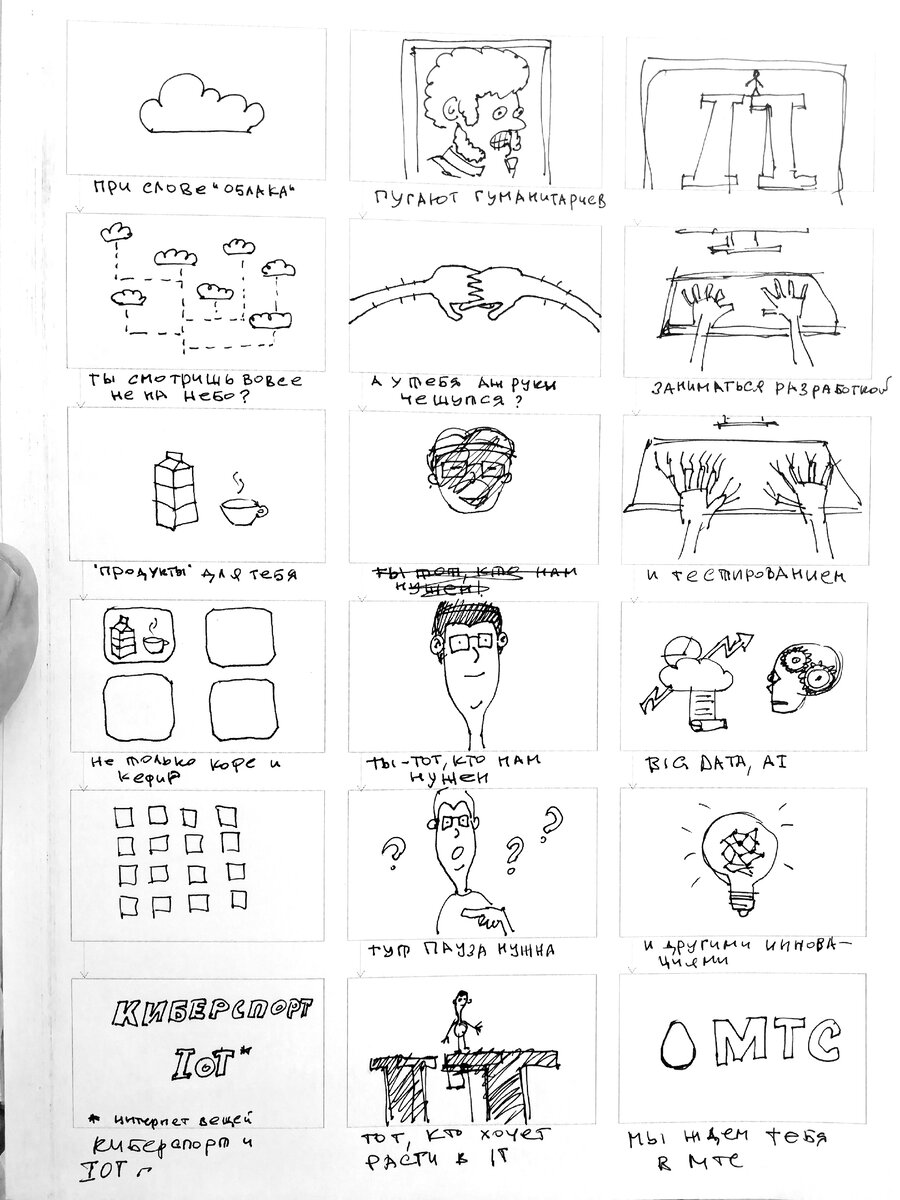 ПРИ СЛОВЕ "ОБЛАКА"
ТЫ СМОТРИШЬ ВОВСЕ
НЕ НА НЕБО?
"ПРОДУКТЫ" ДЛЯ ТЕБЯ
НЕ ТОЛЬКО КОФЕ И
КЕФИР
КИБЕРСПОРТ
IoT*
* ИНТЕРНЕТ ВЕЩЕЙ
КИБЕРСПОРТ И
IOT
ПУГАЮТ ГУМАНИТАРИЕВ
А У ТЕБЯ АЖ РУКИ
ЧЕШУТСЯ?
ТЫ ТОТ, КТО НАМ
НУЖЕН!
ТЫ-ТОТ, КТО НАМ
НУЖЕН
? ? ?
ТУТ ПАУЗА НУЖНА
ТОТ, КТО ХОЧЕТ
РАСТИ В IT
IT
ЗАНИМАТЬСЯ РАЗРАБОТКОЙ
И ТЕСТИРОВАНИЕМ
BIG DATA, AI
И ДРУГИМИ ИННОВА-
ЦИЯМИ
МТС
МЫ ЖДЕМ ТЕБЯ
В МТС